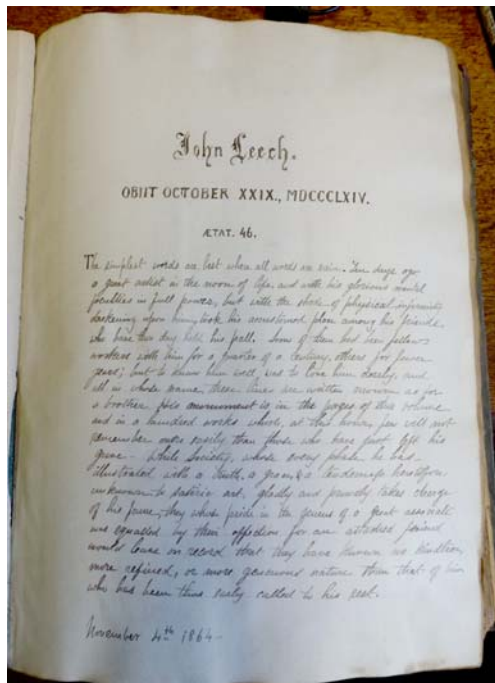 John Leech.
OBIIT OCTOBER XXIX., MDCCCLXIV.
ÆTAT. 46.
The simplest words are best when all words are vain. Ten days ago
a great artist in the noon of life, and with his glorious mental
faculties in full power, but with the shade of physical infirmity
darkening upon him, took his accustomed place among his friends
who have this day held his pall. Some of them had been fellow
workers with him for a quarter of a century, others for fewer
years; but to know him well, was to love him dearly, and
all in whose name these lines are written mourn as for
a brother. His monument is in the pages of this volume
and in a hundred works which, at this hour, few will not
remember more easily than those who have just left his
grave. While Society, whose every phase he has
illustrated with a truth, a grace, & a tenderness heretofore
unknown to satiric art, gladly and proudly takes charge
of his fame, they whose pride in the genius of a great associate
was equalled by their affection for an attached friend
would leave on record that they have known no kindlier,
more refined, or more generous nature than that of him
who has been thus early called to his rest.
November 4th 1864